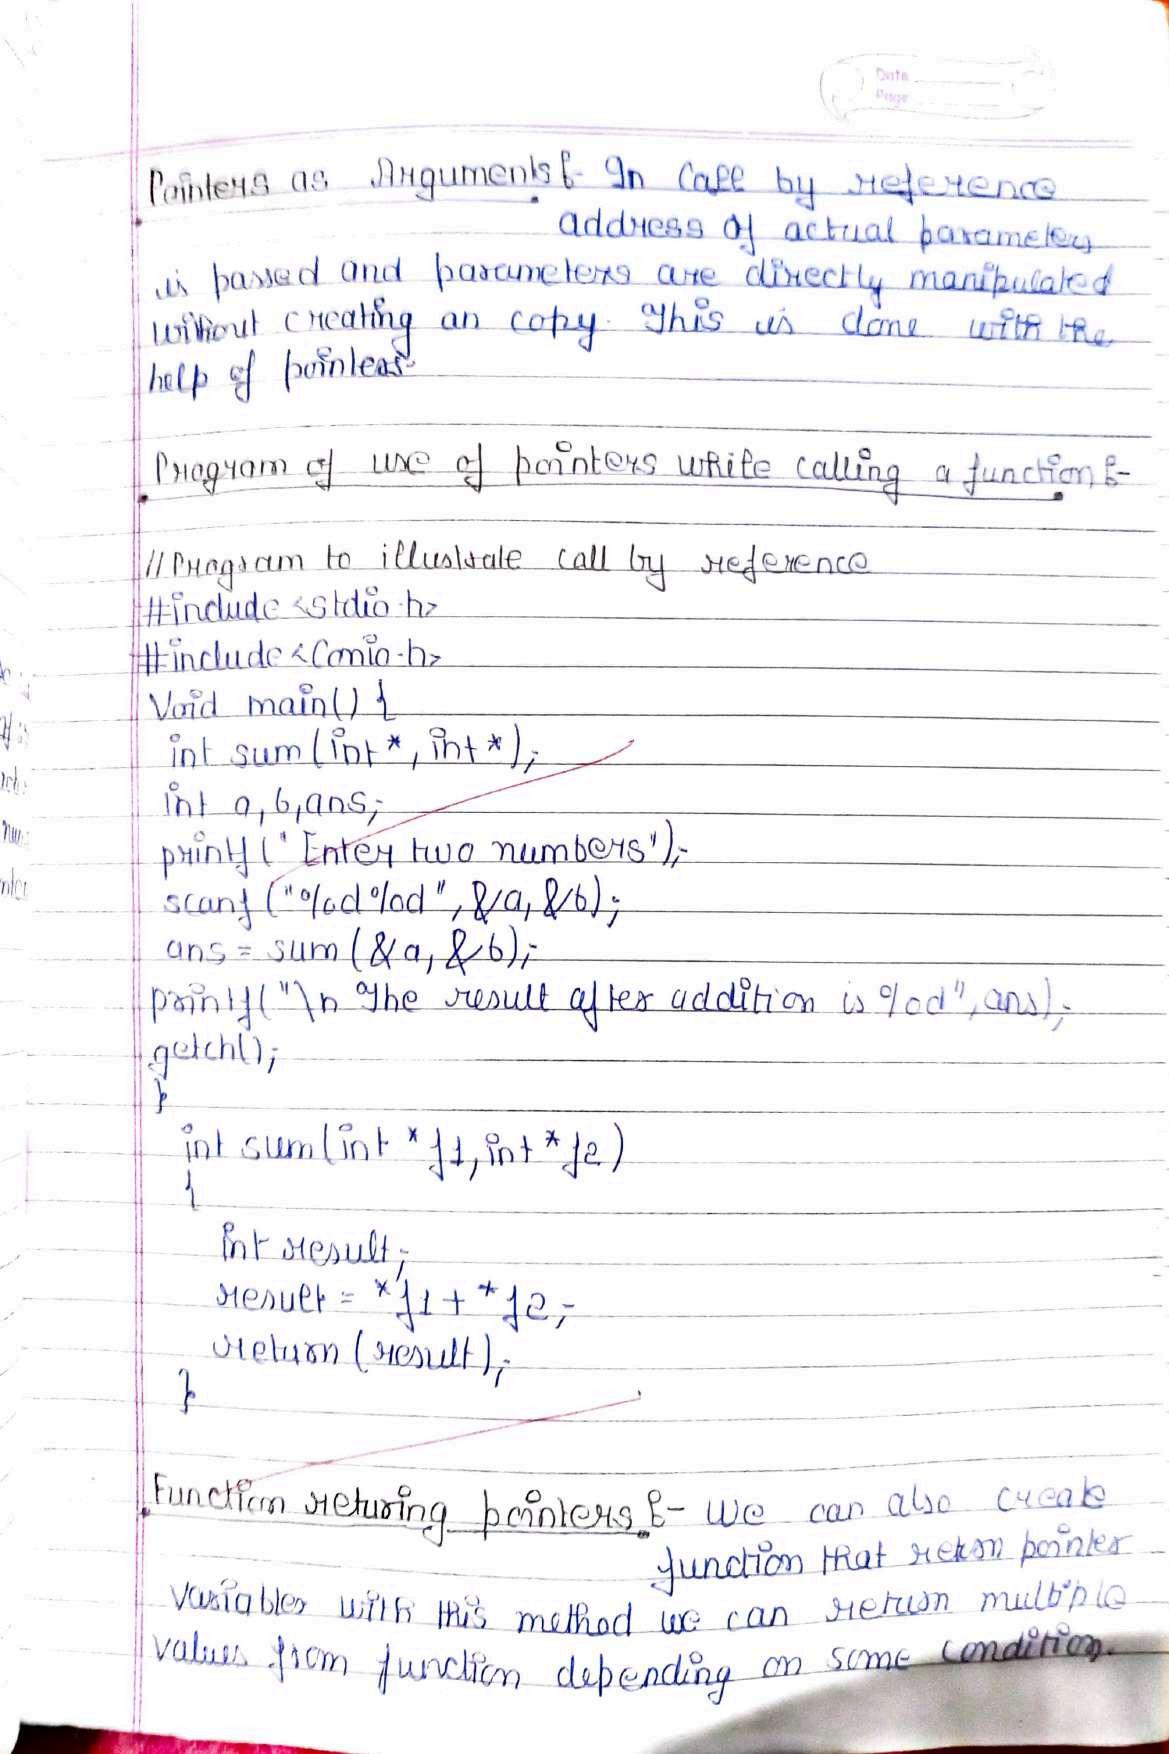 Date
Page
Pointers as Arguments :- In Call by reference
address of actual parameters
is passed and parameters are directly manipulated
without creating an copy. This is done with the
help of pointers.
Program of use of pointers while calling a function :-
// Program to illustrate call by reference
#include <stdio.h>
#include <conio.h>
Void main() {
int sum (int*, int*);
int a, b, ans;
printf ("Enter two numbers");
scanf ("%d%d", &a, &b);
ans = sum (&a, &b);
printf("\n The result after addition is %d", ans);
getch();
}
int sum (int *f1, int *f2)
{
int result;
result = *f1 + *f2;
return (result);
}
Function returing pointers :- We can also create
function that return pointer
variables with this method we can return multiple
values from function depending on some condition.